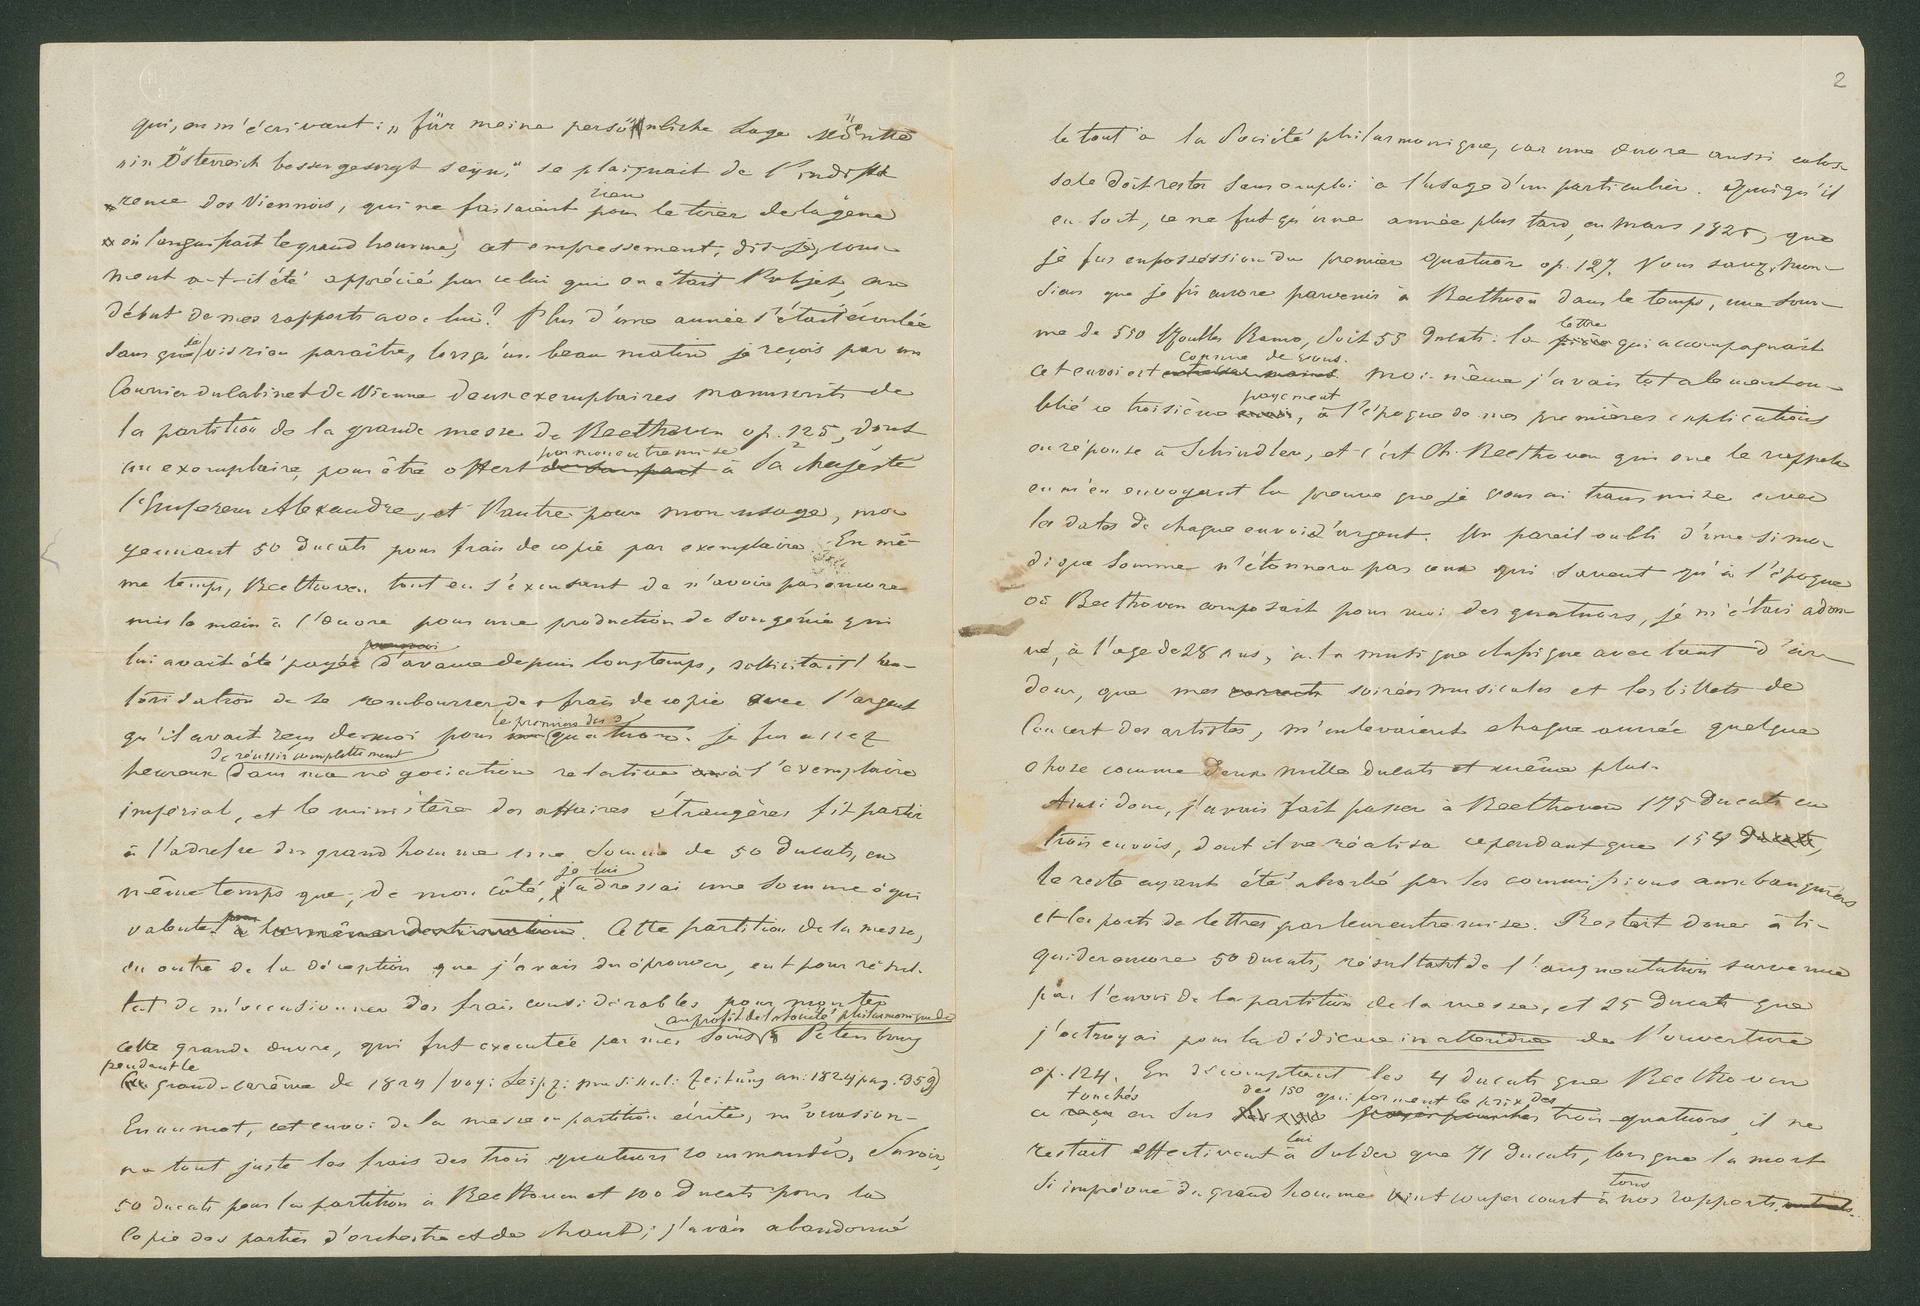 qui, en m'écrivant: „für meine persönliche Lage könnte
„in Österreich besser gesorgt seyn," se plaignait de l'indiffé
rence des Viennois, qui ne faisaient rien pour le tirer de la gêne
où languissait le grand homme, cet empressement, dis-je, com-
ment a-t-il été apprécié par celui qui en était l'objet, au
début de mes rapports avec lui? Plus d'une année s'était écoulée
sans que je visse rien paraître, lorsqu'un beau matin je reçois par un
Courrier du Cabinet de Vienne deux exemplaires manuscrits de
la partition de la grande messe de Beethoven op. 125, dont
un exemplaire, pour être offert par mon entremise à Sa Majesté
l'Empereur Alexandre, et l'autre pour mon usage, mo
yennant 50 ducats pour frais de copie par exemplaire. En mê-
me temps, Beethoven tout en s'excusant de n'avoir pas encore
mis la main à l'œuvre pour une production de son génie qui
lui avait été payée d'avance depuis longtemps, sollicitait l'au-
torisation de se rembourser des frais de copie avec l'argent
qu'il avait reçu de moi pour le premier des quatuors. Je fus assez
heureux de réussir complettement dans ma négociation relative à l'exemplaire
impérial, et le ministère des affaires étrangères fit partir
à l'adresse du grand homme une somme de 50 ducats, en
même temps que, de mon côté, je lui adressai une somme équi
valente. Cette partition de la messe,
en outre de la déception que j'avais du éprouver, eut pour résul-
tat de m'occasionner des frais considérables pour monter
cette grande œuvre, qui fut executée par mes soins au profit de la Société philarmonique de Petersbourg
pendant le grand-carême de 1824 (voy: Leipz: musikal: Zeitung an: 1824 pag. 359)
En un mot, cet envoi de la messe en partition écrite, m'occasion-
na tout juste les frais des trois quatuors commandés, savoir,
50 ducats pour la partition à Beethoven et 100 ducats pour la
Copie des parties d'orchestre et de chant; j'avais abandonné
2
le tout à la Société philarmonique, car une œuvre aussi colos-
sale doit rester sans emploi à l'usage d'un particulier. Quoiqu'il
en soit, ce ne fut qu'une année plus tard, en Mars 1825, que
je fus en possession du premier quatuor op. 127. Vous savez, Mon-
sieur que je fis encore parvenir à Beethoven dans le temps, une som-
me de 550 Roubles Banco, soit 55 Ducats: la lettre qui accompagnait
cet envoi est connue de vous. Moi-même j'avais totalement ou-
blié ce troisième payement, à l'époque de mes premières explications
en réponse à Schindler, et c'est Ch. Beethoven qui me le rappela
en m'en envoyant la preuve que je vous ai transmise avec
les dates de chaque envoi d'argent. Un pareil oubli d'une si mo-
dique somme n'étonnera pas ceux qui savent qu'à l'époque
où Beethoven composait pour moi des quatuors, je m'étais adon-
né, à l'age de 28 ans, à la musique classique avec tant d'ar
deur, que mes soirées musicales et les billets de
Concert des artistes, m'enlevaient chaque année quelque
chose comme deux mille ducats et même plus.
Ainsi donc, j'avais fait passer à Beethoven 175 Ducats en
trois envois, dont il ne réalisa cependant que 154,
le reste ayant été absorbé par les commissions aux banquiers
et les ports de lettres par leur entremise. Restait donc à li-
quider encore 50 ducats, résultant de l'augmentation survenue
par l'envoi de la partition de la messe, et 25 Ducats que
j'octroyai pour la dédicace inattendue de l'ouverture
op. 124. En décomptant les 4 ducats que Beethoven
a touchés en sus des 150 qui forment le prix des trois quatuors, il ne
restait effectivement à lui solder que 71 ducats, lorsque la mort
si imprévue du grand homme vint couper court à tous nos rapports.